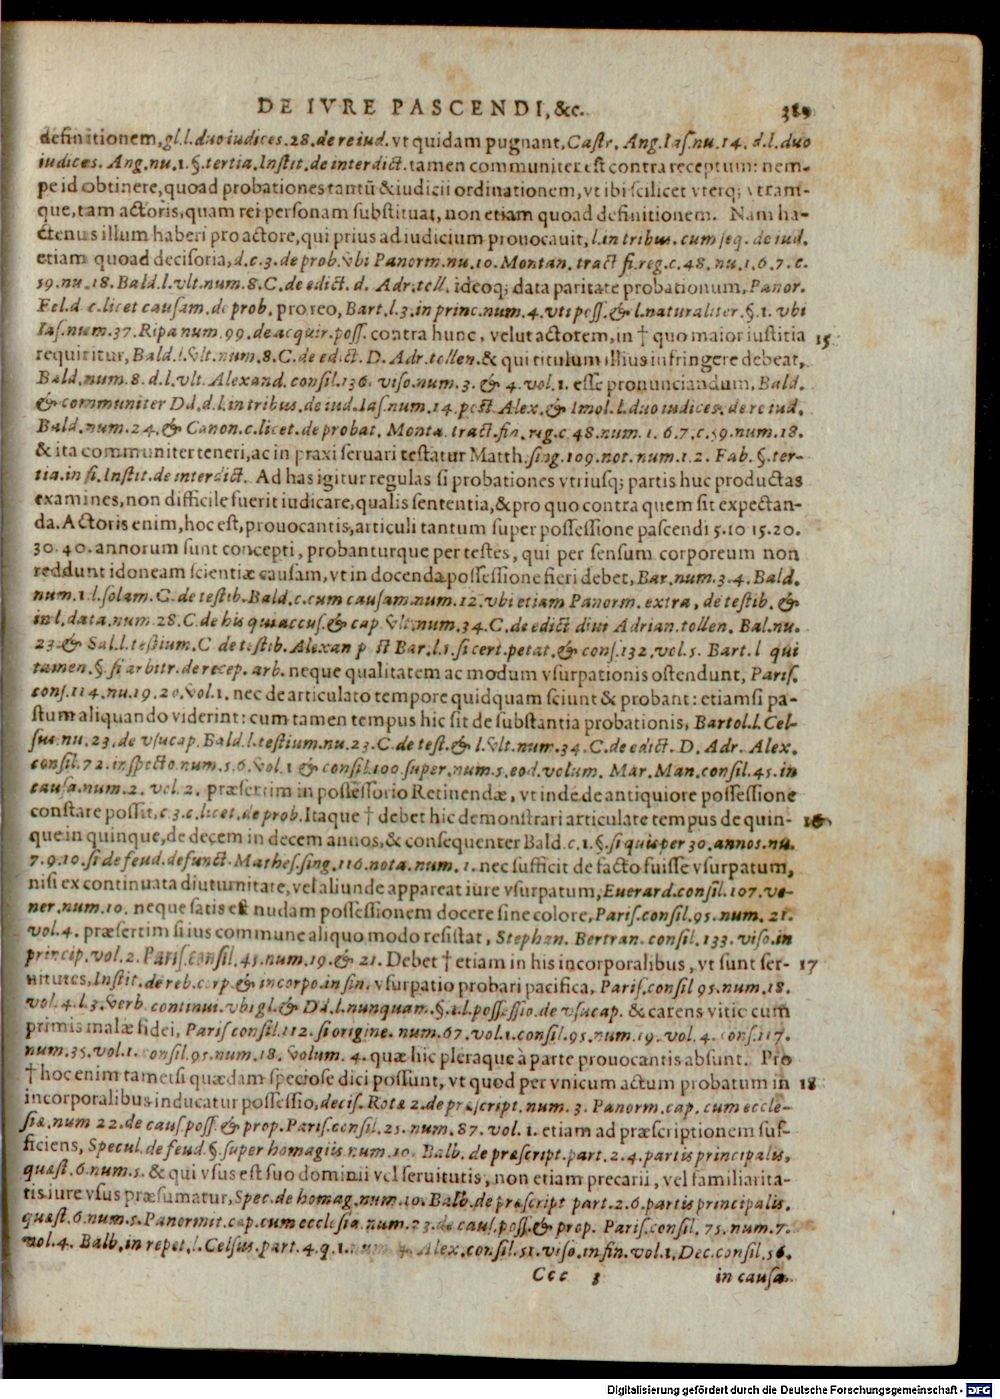 DE IVRE PASCENDI, &c. 389
definitionem, gl. l. duo iudices. 28. de re iud. vt quidam pugnant, Castr. Ang. Ias. nu. 14. d. l. duo
iudices. Ang. nu. 1. §. tertia. Instit. de interdict. tamen communiter est contra receptum: nem-
pe id obtinere, quoad probationes tantū & iudicii ordinationem, vt ibi scilicet vterq; vtram-
que, tam actoris, quam rei personam substituat, non etiam quoad definitionem. Nam ha-
ctenus illum haberi pro actore, qui prius ad iudicium prouocauit, l. in tribus. cum seq. de iud.
etiam quoad decisoria, d. c. 3. de prob. vbi Panorm. nu. 10. Montan. tract fi. reg. c. 48. nu. 1. 6. 7. c.
59. nu. 18. Bald. l. vlt. num. 8. C. de edict. d. Adr. toll. ideoq; data paritate probationum, Panor.
Fel. d. c. licet causam. de prob. pro reo, Bart. l. 3. in princ. num. 4. vti poss. & l. naturaliter. §. 1. vbi
Ias. num. 37. Ripa num. 99. de acquir. poss. contra hunc, velut actorem, in † quo maior iustitia 15
requiritur, Bald. l. vlt. num. 8. C. de edict. D. Adr. tollen. & qui titulum illius infringere debeat,
Bald. num. 8. d. l. vlt. Alexand. consil. 136. viso. num. 3. & 4. vol. 1. esse pronunciandum, Bald.
& communiter Dd. d. l. in tribus. de iud. Ias. num. 14. post Alex. & Imol. l. duo iudices. de re iud.
Bald. num. 24. & Canon. c. licet. de probat. Monta. tract. fin. reg. c. 48. num. 1. 6. 7. c. 59. num. 18.
& ita communiter teneri, ac in praxi seruari testatur Matth. sing. 109. not. num. 1. 2. Fab. §. ter-
tia. in fi. Instit. de interdict. Ad has igitur regulas si probationes vtriusq; partis huc productas
examines, non difficile fuerit iudicare, qualis sententia, & pro quo contra quem sit expectan-
da. Actoris enim, hoc est, prouocantis, articuli tantum super possessione pascendi 5. 10 15. 20.
30. 40. annorum sunt concepti, probanturque per testes, qui per sensum corporeum non
reddunt idoneam scientiæ causam, vt in docenda possessione fieri debet, Bar. num. 3. 4. Bald.
num. 1. l. solam. C. de testib. Bald. c. cum causam. num. 12. vbi etiam Panorm. extra, de testib. &
in l. data. num. 28. C. de his qui accus. & cap. vlt. num. 34. C. de edict diui Adrian. tollen. Bal. nu.
23. & Sal. l. testium. C de testib. Alexan p st Bar. l. 1. si cert. petat. & cons. 132. vol. 5. Bart. l qui
tamen. §. si arbitr. de recep. arb. neque qualitatem ac modum vsurpationis ostendunt, Paris.
cons. 114. nu. 19. 20. vol. 1. nec de articulato tempore quidquam sciunt & probant: etiamsi pa-
stum aliquando viderint: cum tamen tempus hic sit de substantia probationis, Bartol. l. Cel-
sus. nu. 23. de vsucap. Bald. l. testium. nu. 23. C. de test. & l. vlt. num. 34. C. de edict. D. Adr. Alex.
consil. 72. inspecto. num. 5. 6. vol. 1 & consil. 100. super. num. 5. eod. volum. Mar. Man. consil. 45. in
causa. num. 2. vol. 2. præsertim in possessorio Retinendæ, vt inde de antiquiore possessione
constare possit, c. 3. c. licet. de prob. Itaque † debet hic demonstrari articulate tempus de quin- 16
que in quinque, de decem in decem annos, & consequenter Bald. c. 1. §. si quis per 30. annos. nu.
7. 9. 10. si de feud. defunct. Mathes. sing. 116. nota. num. 1. nec sufficit de facto fuisse vsurpatum,
nisi ex continuata diuturnitate, vel aliunde appareat iure vsurpatum, Euerard. consil. 107. ve-
ner. num. 10. neque satis est nudam possessionem docere sine colore, Paris. consil. 95. num. 21.
vol. 4. præsertim si ius commune aliquo modo resistat, Stephan. Bertran. consil. 133. viso. in
princip. vol. 2. Paris. consil. 45. num. 19. & 21. Debet † etiam in his incorporalibus, vt sunt ser- 17
uitutes, Instit. de reb. corp. & incorpo. in fin. vsurpatio probari pacifica, Paris. consil 95. num. 18.
vol. 4. l. 3. verb. continui. vbi gl. & Dd. l. nunquam. §. 1. l. possessio. de vsucap. & carens vitio cum
primis malæ fidei, Paris consil. 112. si origine. num. 67. vol. 1. consil. 95. num. 19. vol. 4. cons. 117.
num. 35. vol. 1. consil. 95. num. 18. volum. 4. quæ hic pleraque à parte prouocantis absunt. Pro
† hoc enim tametsi quædam speciose dici possunt, vt quod per vnicum actum probatum in 18
incorporalibus inducatur possessio, decis. Rotæ 2. de præscript. num. 3. Panorm. cap. cum eccle-
sia. num 22. de caus. poss. & prop. Paris. consil. 25. num. 87. vol. 1. etiam ad præscriptionem suf-
ficiens, Specul. de feud. §. super homagiis num. 10. Balb. de præscript. part. 2. 4. partis principalis,
quæst. 6. num. 5. & qui vsus est suo dominii vel seruitutis, non etiam precarii, vel familiarita-
tis iure vsus præsumatur, Spec. de homag. num. 10. Balb. de præscript part. 2. 6. partis principalis.
quæst. 6. num. 5. Panormit. cap. cum ecclesia. num. 23. de caus. poss. & prop. Paris. consil. 75. num. 7.
vol. 4. Balb. in repet. l. Celsus. part. 4. q. 1. num. 4. Alex. consil. 51. viso. in fin. vol. 1, Dec. consil. 56.
Ccc 3 in causa.
Digitalisierung gefördert durch die Deutsche Forschungsgemeinschaft - DFG